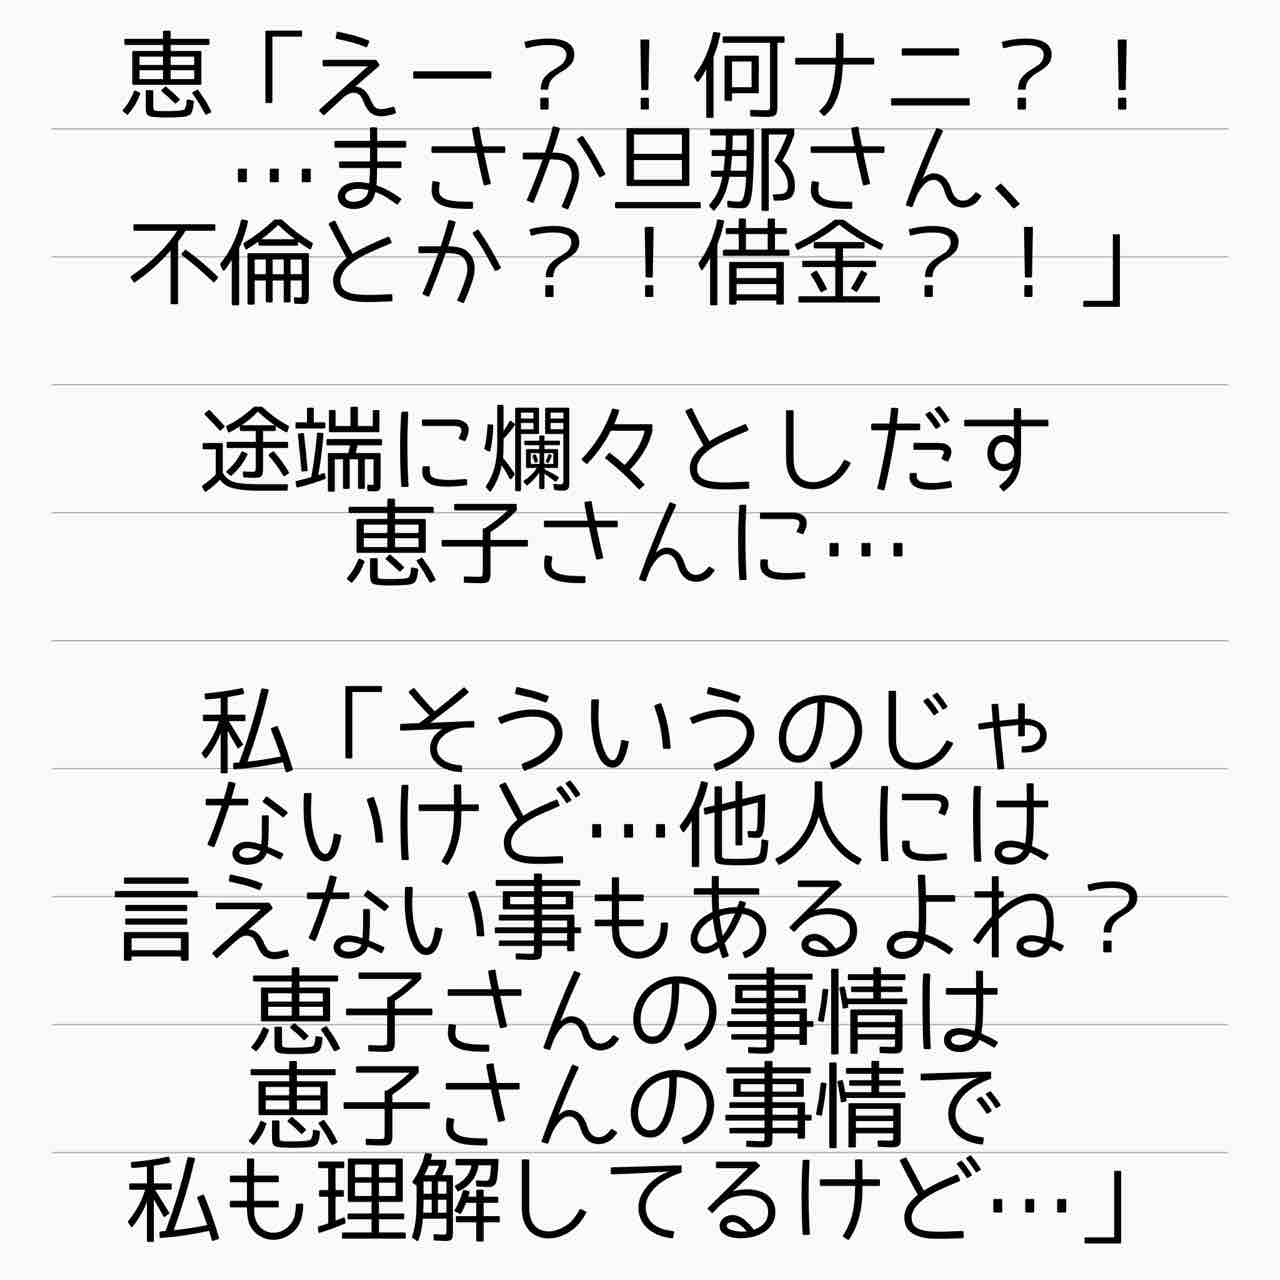 恵「えー？！何ナニ？！
…まさか旦那さん、
不倫とか？！借金？！」
途端に爛々としだす
恵子さんに…
私「そういうのじゃ
ないけど…他人には
言えない事もあるよね？
恵子さんの事情は
恵子さんの事情で
私も理解してるけど…」